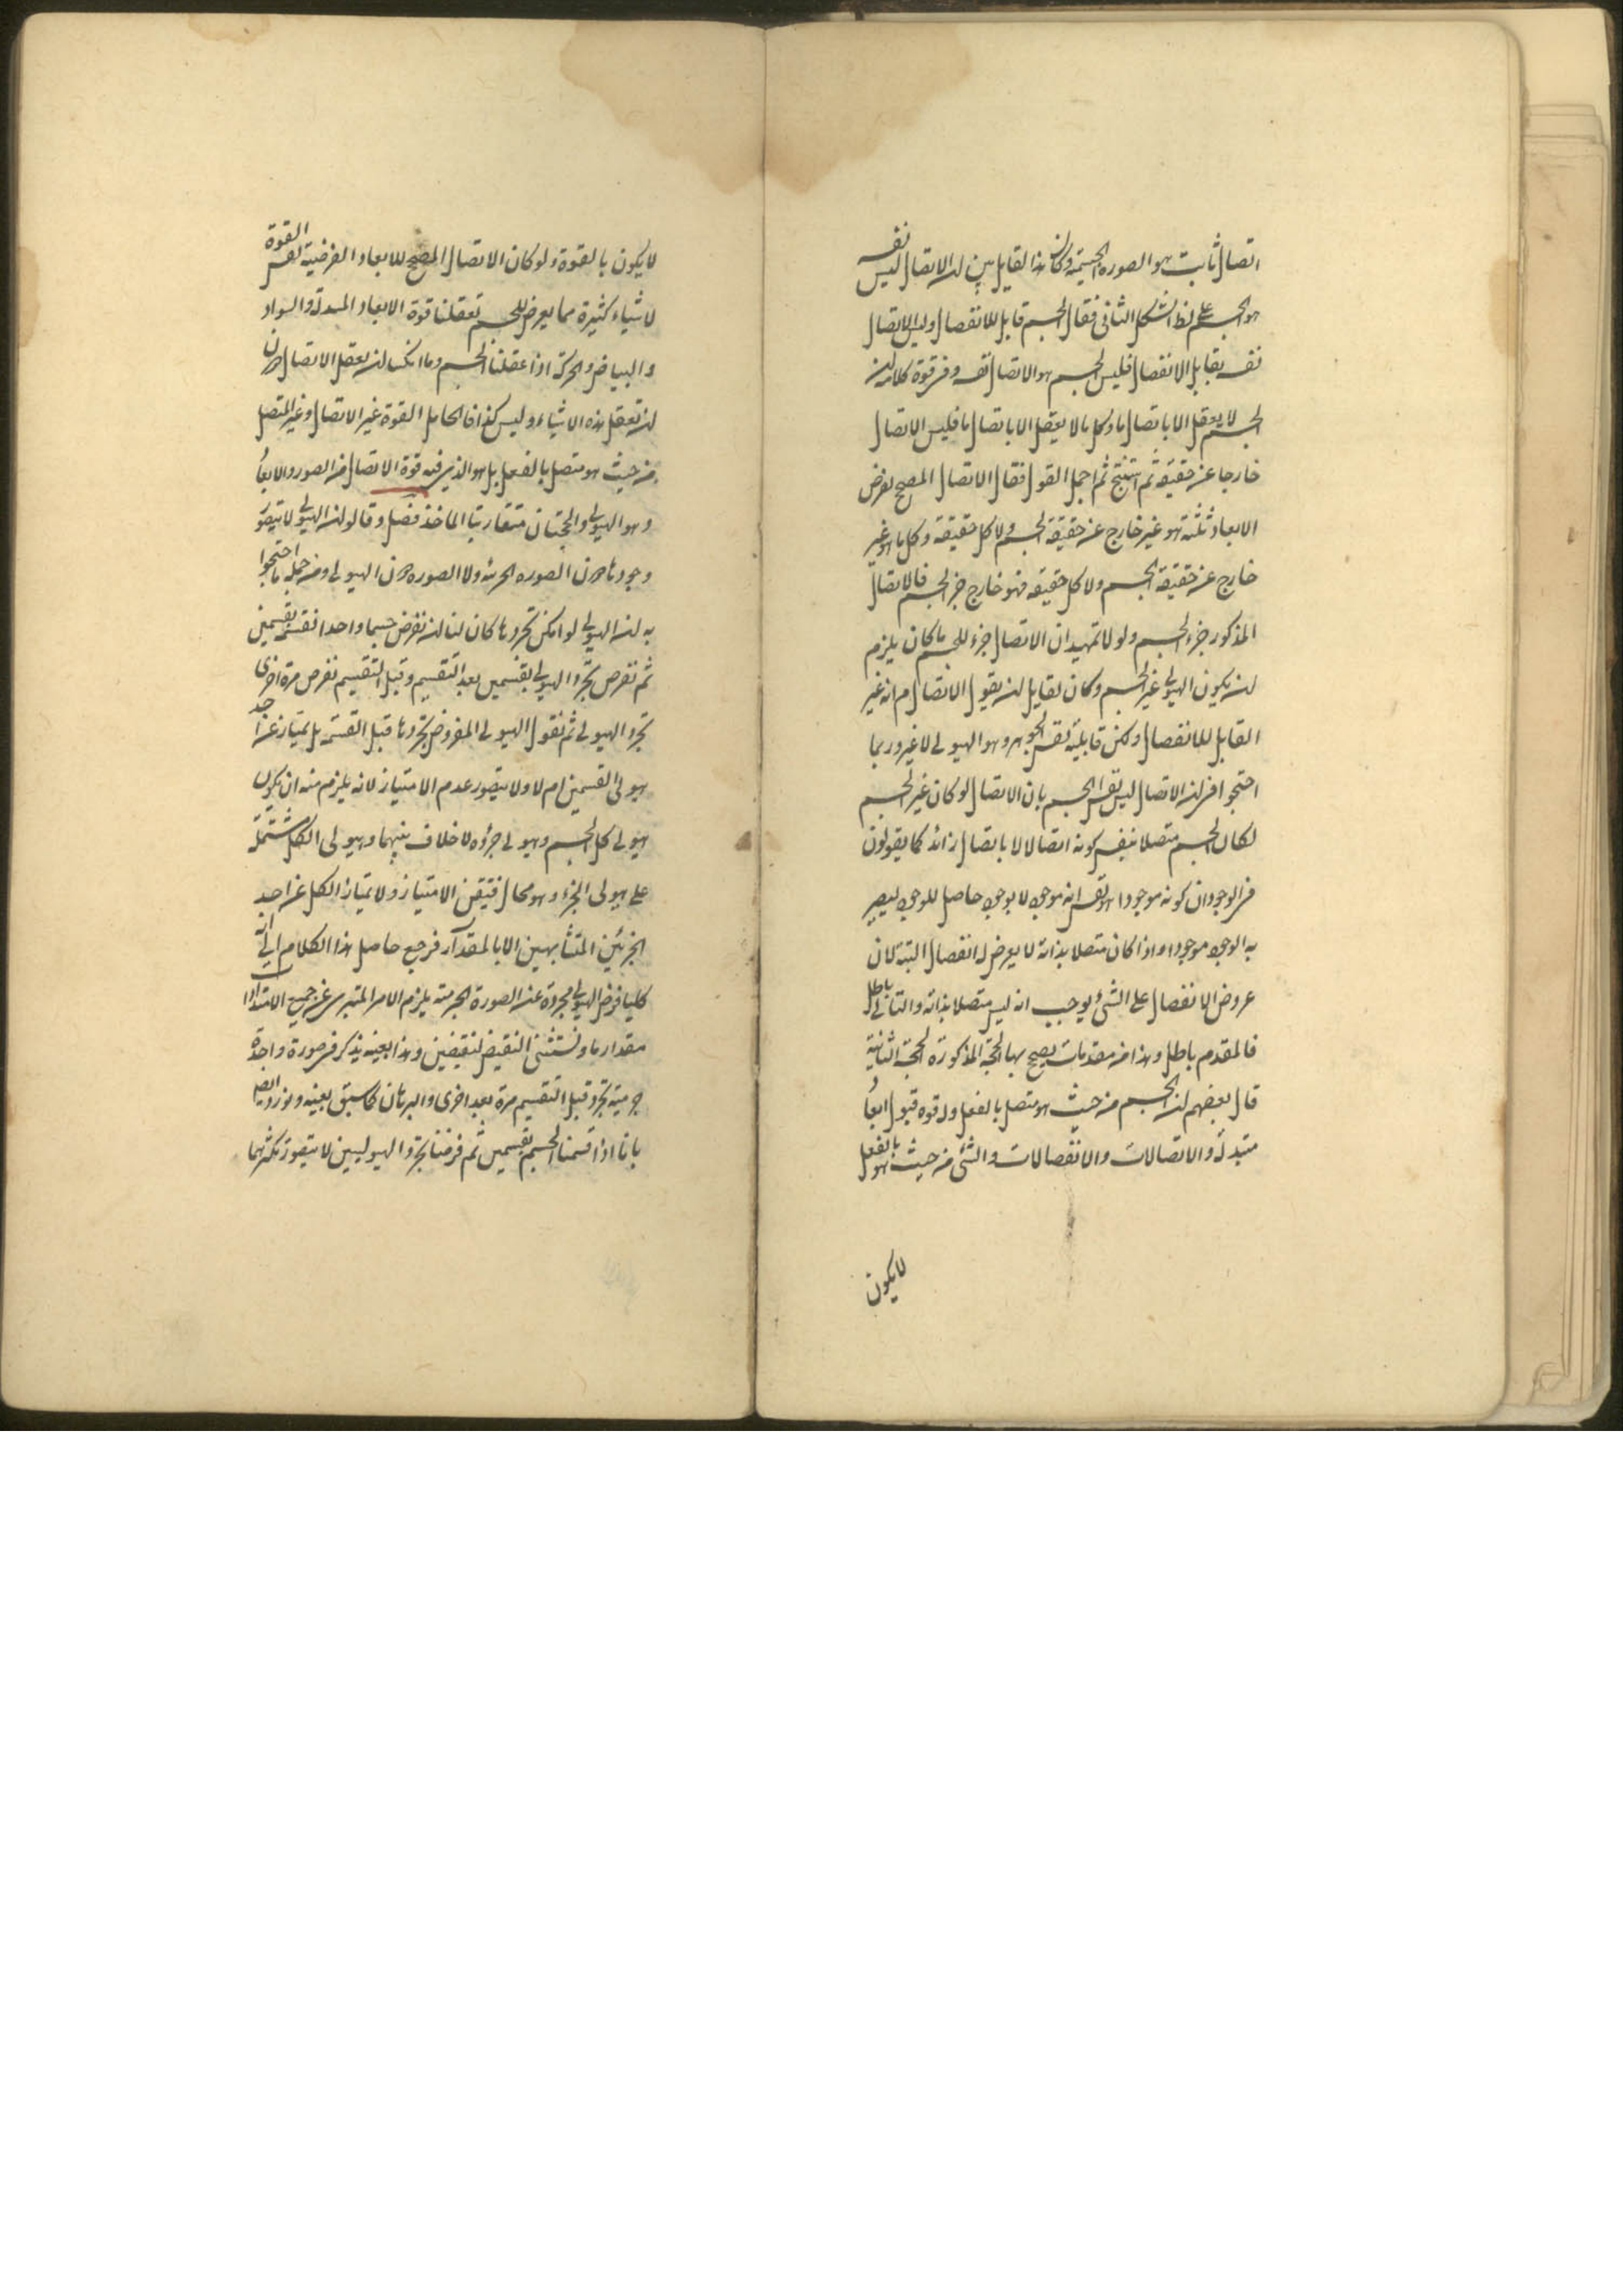 اتصال ثابت هو الصورة الجسمية وكان هذا القايل بين ان الاتصال ليس نفسه
هو الجسم على نمط الشكل الثانى فقال الجسم قابل للانفصال وليس الاتصال
نفسه يقابل الانفصال فليس الجسم هو الاتصال نفسه وفى قوة كلامه ان
الجسم لا يعقل الا باتصال ما وكل ما لا يعقل الا باتصال ما فليس الاتصال
خارجا عن حقيقته ثم استنتج ثم اجمل القول فقال الاتصال المصحح لفرض
الابعاد ثلثة هو غير خارج عن حقيقة الجسم ولا كل حقيقته وكل ما هو غير
خارج عن حقيقة الجسم ولا كل حقيقته فهو خارج جزء الجسم فالاتصال
المذكور جزء الجسم ولولا تمهيد ان الاتصال جزء للجسم ما كان يلزم
ان يكون الهيولى غير الجسم وكان لقايل ان يقول الاتصال م انه غير
القابل للانفصال ولكن قابليته نفس الجوهر وهو الهيولى لا غير وربما
احتجوا فى ان الاتصال ليس نفس الجسم بان الاتصال لو كان غير الجسم
لكان الجسم متصلا بنفس كونه اتصالا لا باتصال زائد كما يقولون
فى الوجود ان كونه موجودا هو نفس انه موجود لا بوجود حاصل للوجود ليصير
به الوجود موجودا واذا كان متصلا بذاته لا يعرض له انفصال البتة لان
عروض الانفصال على الشئ يوجب انه ليس متصلا بذاته والتالى باطل
فالمقدم باطل وهذا من مقدمات يصح بها الحجة المذكورة الحجة الثانية
قال بعضهم ان الجسم من حيث هو متصل بالفعل وله قوة قبول ابعاد
متبدلة والاتصالات والانفصالات والشئ من حيث هو بالفعل
لايكون
لايكون بالقوة ولو كان الاتصال المصحح للابعاد الفرضية نفس القوة
لاشياء كثيرة مما يعرض للجسم تعقلنا قوة الابعاد المتبدلة والسواد
والبياض والحركة اذا عقلنا الجسم وما امكن ان يعقل الاتصال دون
ان تعقل هذه الاشياء وليس كذا فالحامل القوة غير الاتصال وغير المتصل
من حيث هو متصل بالفعل بل هو الذى فيه قوة الاتصال من الصور والابعاد
وهو الهيولى والحجتان متقاربتا الماخذ فصل وقالوا ان الهيولى لا يتصور
وجودها دون الصورة الجرمية ولا الصورة دون الهيولى ومن جملة ما احتجوا
به ان الهيولى لو امكن تجردها كان لنا ان نفرض جسما واحدا نقسمه بقسمين
ثم نفرض تجرد الهيولى بقسمين بعد التقسيم وقبل التقسيم نفرض مرة اخرى
تجرد الهيولى ثم نقول الهيولى المفروض تجردها قبل القسمة هل يمتاز عن احد
هيولى القسمين ام لا ولا يتصور عدم الامتياز لانه يلزم منه ان يكون
هيولى كل الجسم وهيولى جزؤه لا خلاف بينهما وهيولى الكل مشتملة
على هيولى الجزء وهو محال فتيقن الامتياز ولا يمتاز الكل عن احد
الجزئين المتشابهين الا بالمقدار فرجع حاصل هذا الكلام الى انه
كليا فرض الهيولى مجردة عن الصورة الجرمية يلزم الامر المتبرى عن جميع الامتدادات
مقدار ما ونستثنى النقيض لنقيضين وهذا بعينه يذكر فى صورة واحدة
جرمية تجرد قبل التقسيم مرة بعد اخرى والبرهان كما سبق بعينه ونورد ايضا
بانا اذا قسمنا الجسم بقسمين ثم فرضنا تجرد الهيوليين لا يتصور تكثرهما